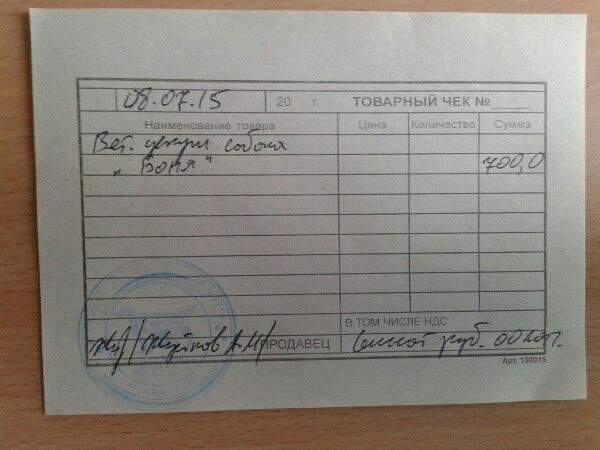 08.07.15 20 г. ТОВАРНЫЙ ЧЕК №
Наименование товара Цена Количество Сумма
Вет. услуги собака
„Боня“ 700,0
В ТОМ ЧИСЛЕ НДС
ПРОДАВЕЦ Семьсот руб. 00 коп.
Арт. 130015